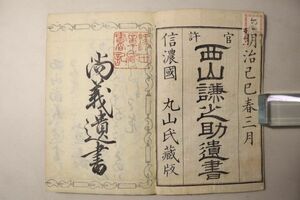 官許
明治己巳春三月
西山謙之助遺書
信濃國 丸山氏藏版
尚義遺書